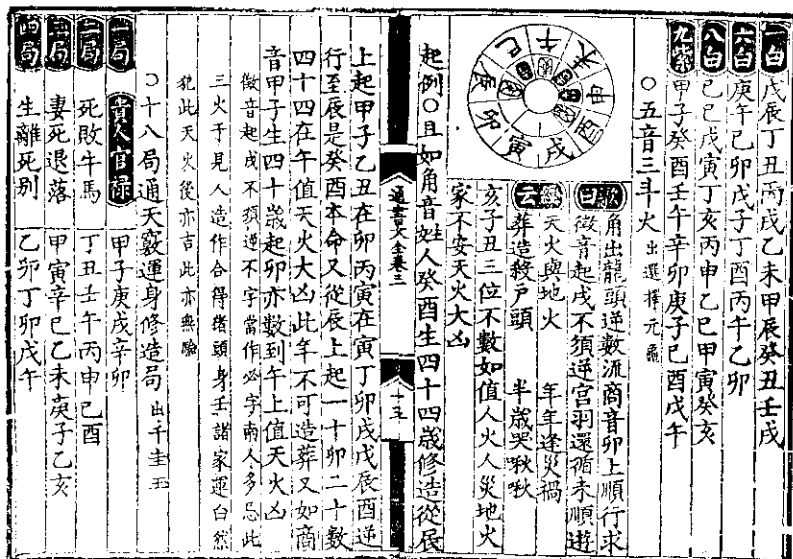 一白 戊辰丁丑丙戌乙未甲辰癸丑壬戌
六白 庚午己卯戊子丁酉丙午乙卯
八白 己巳戊寅丁亥丙申乙巳甲寅癸亥
九紫 甲子癸酉壬午辛卯庚子己酉戊午
○五音三斗火 出選擇元龜
午未申酉戌寅卯辰巳
歌曰 角出龍頭逆數流商音卯上順行求
徵音起戌不須逆宮羽還循未順遊
天火與地火 年年逢災禍
經云 葬造殺戶頭 半歲哭啾啾
亥子丑三位不數如值人火人災地火
家不安天火大凶
起例○且如角音姓人癸酉生四十四歲修造從辰
通書大全卷三
十五
上起甲子乙丑在卯丙寅在寅丁卯戌戊辰酉逆
行至辰是癸酉本命又從辰上起一十卯二十數
四十四在午值天火大凶此年不可造葬又如商
音甲子生四十歲起卯亦數到午上值天火凶
徵音起戌不須逆不字當作必字兩人多忌此
三火于見人造作合得猪頭身壬諸家運白然
犯此天火後亦吉此亦無驗
○十八局通天竅運身修造局 出千圭玉
一局 貴人官祿 甲子庚戌辛卯
二局 死敗牛馬 丁丑壬午丙申己酉
三局 妻死退落 甲寅辛巳乙未庚子乙亥
四局 生離死別 乙卯丁卯戊午